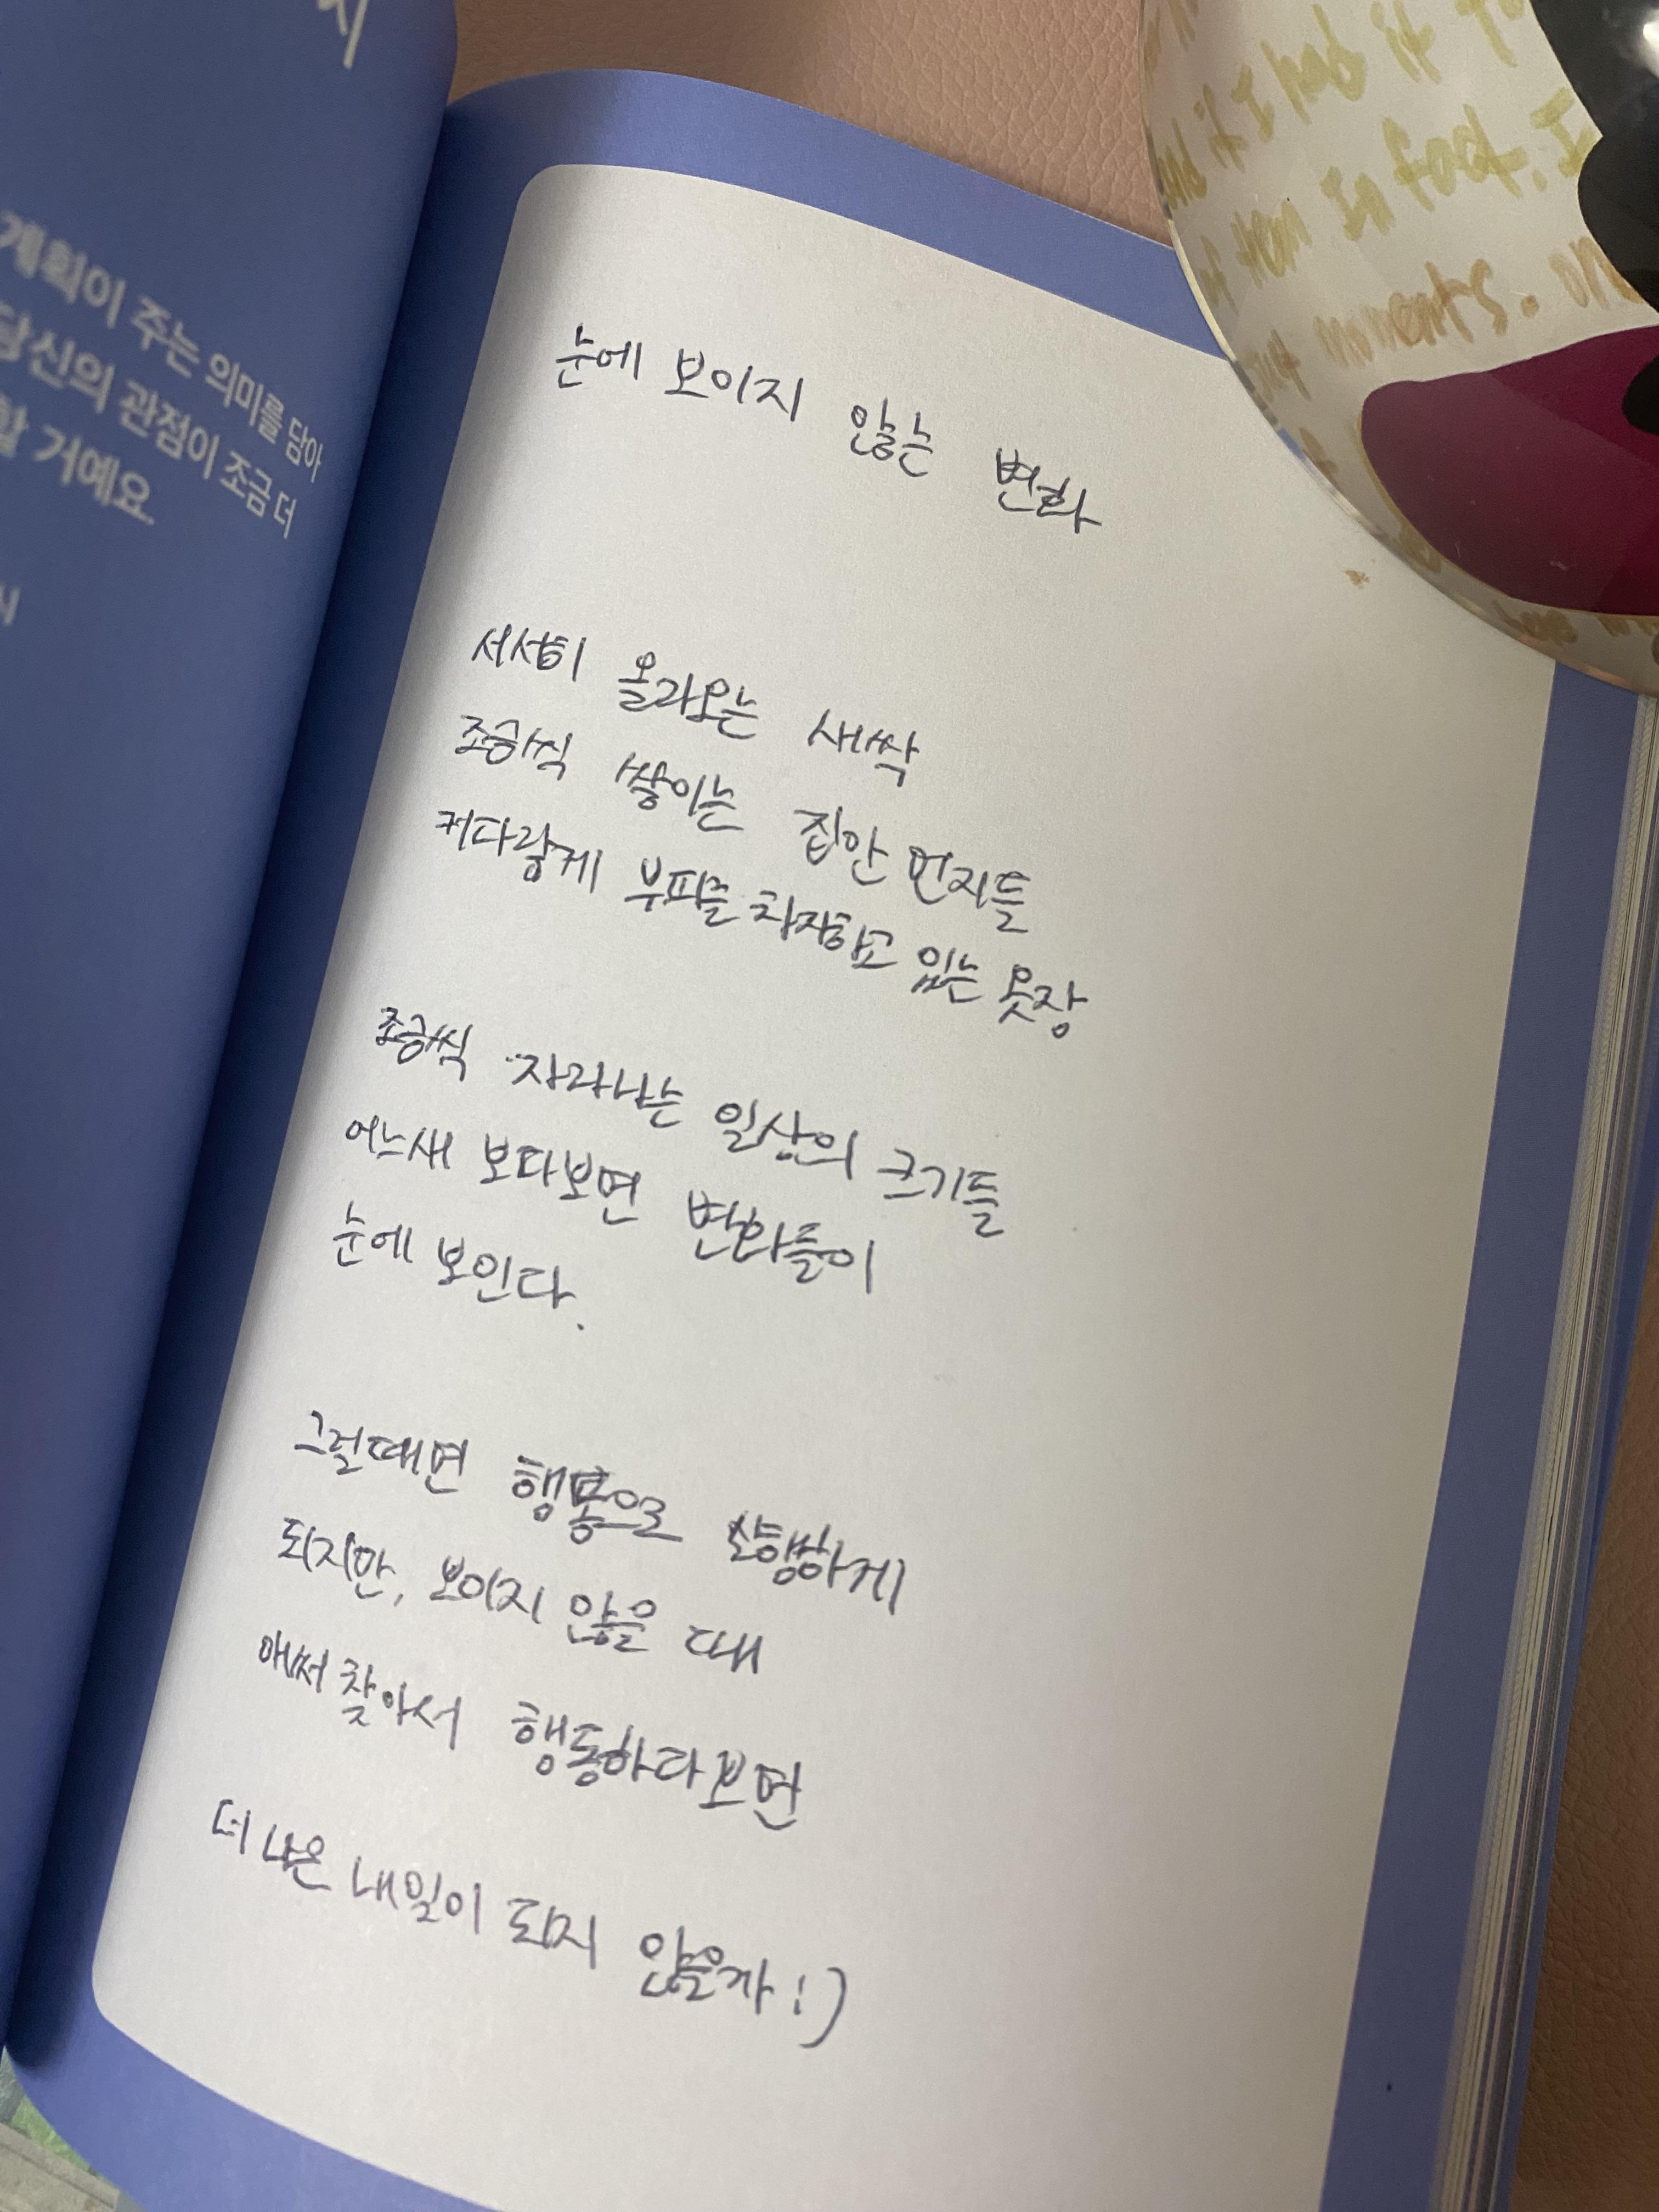 계획이 주는 의미를 담아
당신의 관점이 조금 더
할 거예요.
시
눈에 보이지 않는 변화
서서히 올라오는 새싹
조금씩 쌓이는 집안 먼지들
커다랗게 부피를 차지하고 있는 옷장
조금씩 자라나는 일상의 크기들
어느새 보다보면 변화들이
눈에 보인다.
그럴때면 행동으로 실행하게
되지만, 보이지 않을 때
애써 찾아서 행동하다보면
더 나은 내일이 되지 않을까 :)
if I had it
them In fact. I
moments.